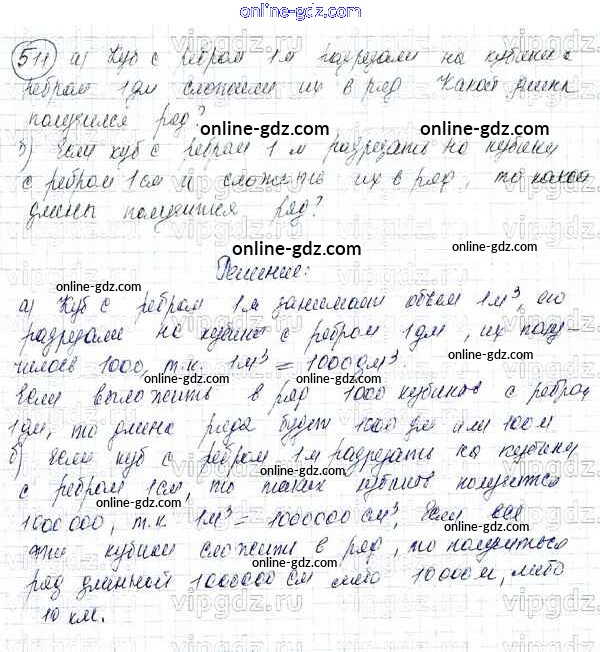 online-gdz.com
511 а) Куб с ребром 1 м разрезали на кубики с
ребром 1 дм сложили их в ряд Какой длины
получился ряд?
online-gdz.com
б) Если куб с ребром 1 м разрезать на кубики
с ребром 1 см и сложить их в ряд, то какой
длины получится ряд?
online-gdz.com
online-gdz.com
Решение:
а) Куб с ребром 1 м занимает объем 1 м³, его
разрезали на кубики с ребром 1 дм, их полу-
чилось 1000, т.к. 1 м³ = 1000 дм³.
online-gdz.com
Если выложить в ряд 1000 кубиков с ребром
1 дм, то длина ряда будет 1000 дм или 100 м
online-gdz.com
б) Если куб с ребром 1 м разрезать на кубики
с ребром 1 см, то таких кубиков получится
1000000, т.к. 1 м³ = 1000000 см³. Если все
эти кубики сложить в ряд, то получиться
ряд длинной 1000000 см либо 10000 м, либо
10 км.
online-gdz.com
online-gdz.com